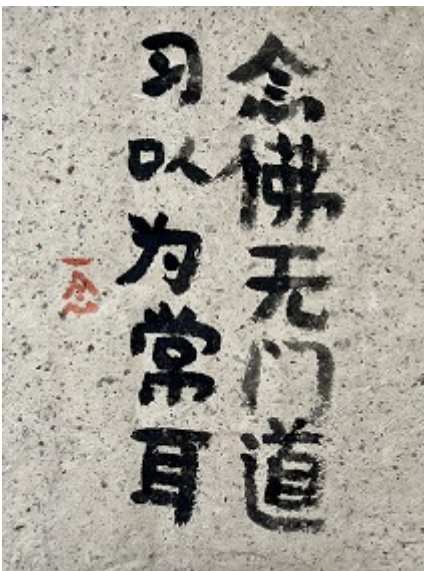 念佛无门道
习以为常耳
一念